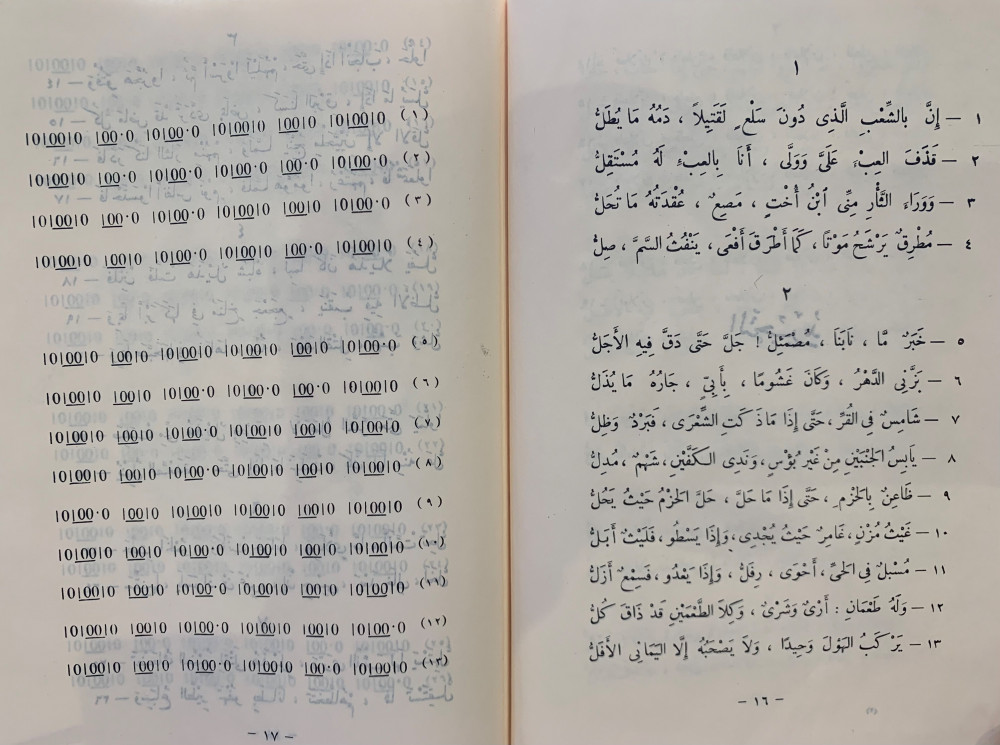 ١
١ — إِنَّ بالشِّعْبِ الَّذِى دُونَ سَلْعٍ لَقَتِيلاً ، دَمُهُ مَا يُطَلُّ
٢ — قَذَفَ العِبْءَ عَلَىَّ وَوَلَّى ، أَنَا بِالعِبْءِ لَهُ مُسْتَقِلُّ
٣ — وَوَرَاءَ الثَّأْرِ مِنِّى ٱبْنُ أُخْتٍ ، مَصِعٌ ، عُقْدَتُهُ مَا تُحَلُّ
٤ — مُطْرِقٌ يَرْشَحُ مَوْتًا ، كَمَا أَطْرَقَ أَفْعَى ، يَنْفُثُ السَّمَّ ، صِلُّ
٢
٥ — خَبَرٌ مَّا ، نَابَنَا ، مُصْمَئِلُّ ! جَلَّ حَتَّى دَقَّ فِيهِ الأَجَلُّ
٦ — بَزَّنِى الدَّهْرُ ، وَكَانَ غَشُومًا ، بِأَبِىٍّ ، جَارُهُ مَا يُذَلُّ
٧ — شَامِسٌ فى القُرِّ ، حَتَّى إِذَا مَا ذَكَتِ الشِّعْرَى ، فَبَرْدٌ وَظِلُّ
٨ — يَابِسُ الجَنْبَيْنِ مِنْ غَيْرِ بُؤْسٍ ، وَنَدِى الكَفَّيْنِ ، شَهْمٌ ، مُدِلُّ
٩ — ظَاعِنٌ بِالحَزْمِ ، حَتَّى إِذَا مَا حَلَّ ، حَلَّ الحَزْمُ حَيْثُ يَحُلُّ
١٠ — غَيْثُ مُزْنٍ ، غَامِرٌ حَيْثُ يُجْدِى ، وَإِذَا يَسْطُو ، فَلَيْثٌ أَبَلُّ
١١ — مُسْبِلٌ فى الحَىِّ ، أَحْوَى ، رِفَلُّ ، وَإِذَا يَعْدُو ، فَسِمْعٌ أَزَلُّ
١٢ — وَلَهُ طَعْمَانِ : أَرْىٌ وَشَرْىٌ ، وَكِلاَ الطَّعْمَيْنِ قَدْ ذَاقَ كُلُّ
١٣ — يَرْكَبُ الهَوْلَ وَحِيدًا ، وَلاَ يَصْحَبُهُ إِلَّا اليَمَانِى الأَفَلُّ
— ١٦ —
(١) 1010010 100.0 10100.0 1010010 10010 1010010
(٢) 1010010 100.0 10100.0 1010010 100.0 10100.0
(٣) 1010010 100.0 10100.0 1010010 10010 10100.0
(٤) 1010010 10010 10100.0 10100.0 100.0 1010010
(٥) 1010010 10010 1010010 10100.0 10010 10100.0
(٦) 1010010 10010 10100.0 10100.0 100.0 1010010
(٧) 1010010 10010 10100.0 1010010 10010 1010010
(٨) 1010010 10010 10100.0 1010010 10010 1010010
(٩) 10100.0 10010 1010010 1010010 10010 1010010
(١٠) 1010010 10010 10100.0 1010010 10010 1010010
(١١) 1010010 10010 10100.0 1010010 10010 1010010
(١٢) 1010010 10010 10100.0 1010010 10010 10100.0
(١٣) 1010010 10010 10100.0 1010010 100.0 1010010
— ١٧ —